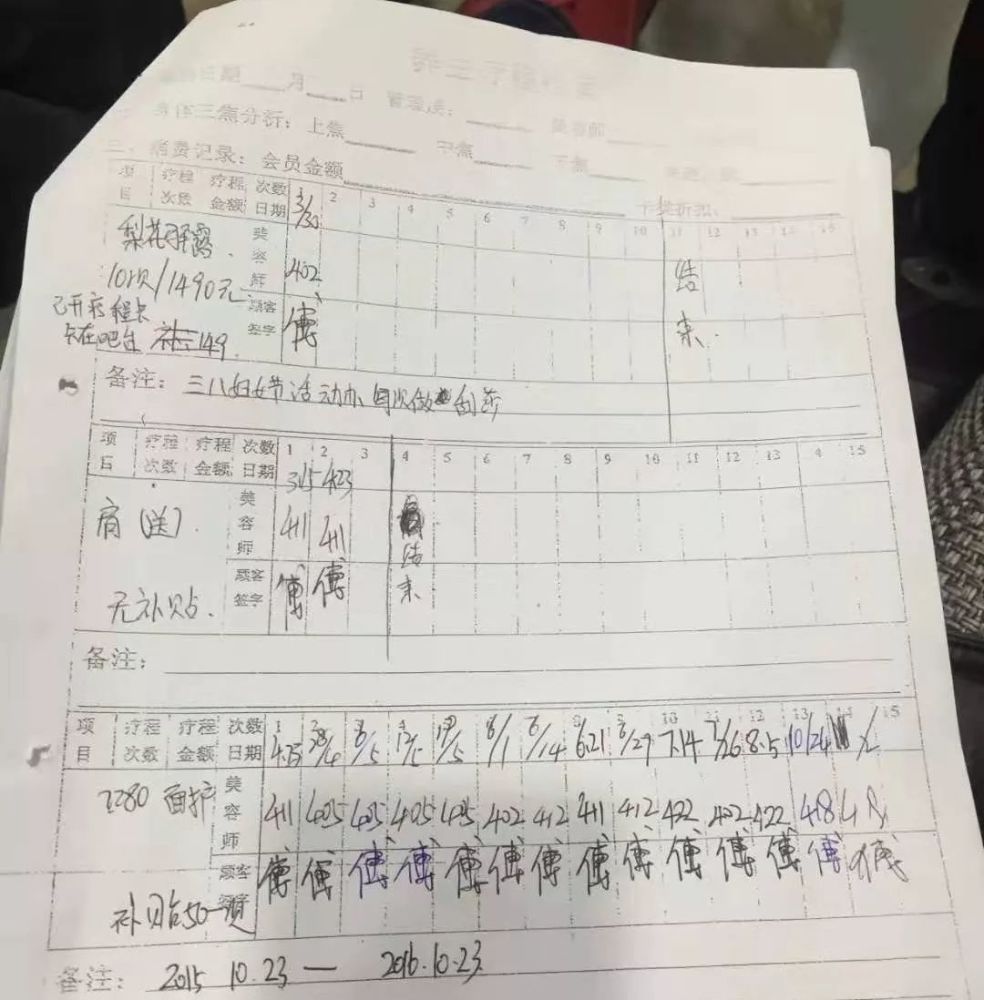 养生疗程
日期____月____日 管理员：____
身体三焦分析：上焦____ 中焦____ 下焦____
三、消费记录：会员金额____
项目 疗程次数 疗程金额 次数日期 1 2 3 4 5 6 7 8 9 10 11 12 13 14 15
3/30
梨花 美容师 402 结
10次/1490元
已开疗程卡 顾客签字 傅 束
卡在吧台 补149
备注：三八妇女节活动办 每次做 刮莎
项目 疗程次数 疗程金额 次数日期 1 2 3 4 5 6 7 8 9 10 11 12 13 4 15
3.15 4.23
肩（送） 美容师 411 411 结
无补贴 顾客签字 傅 傅 束
备注：
项目 疗程次数 疗程金额 次数日期 1 2 3 4 5 6 7 8 9 10 11 12 13 14 15
4.25 6/1 6/14 6.21 6/29 7.14 7/26 8.5 10/24
2280 面护 美容师 411 405 405 405 405 402 412 411 412 422 402 422 418
补贴50一次 顾客签字 傅 傅 傅 傅 傅 傅 傅 傅 傅 傅 傅 傅 傅 傅
备注：2015 10.23 — 2016.10.23